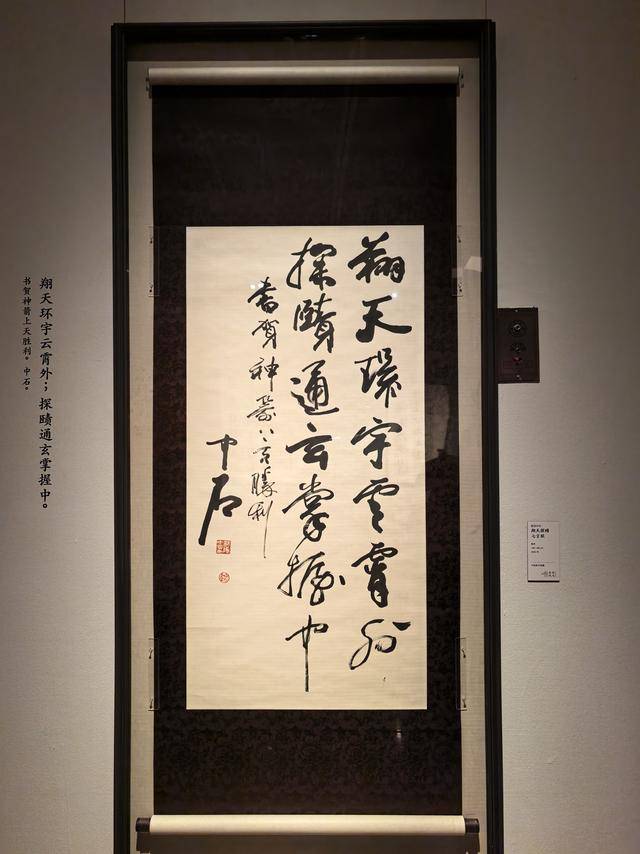 翔天環宇雲霄外
探賾通玄掌握中
書賀神勝利
中石
翔天环宇云霄外；探赜通玄掌握中。
书贺神箭上天胜利。中石。
七言联